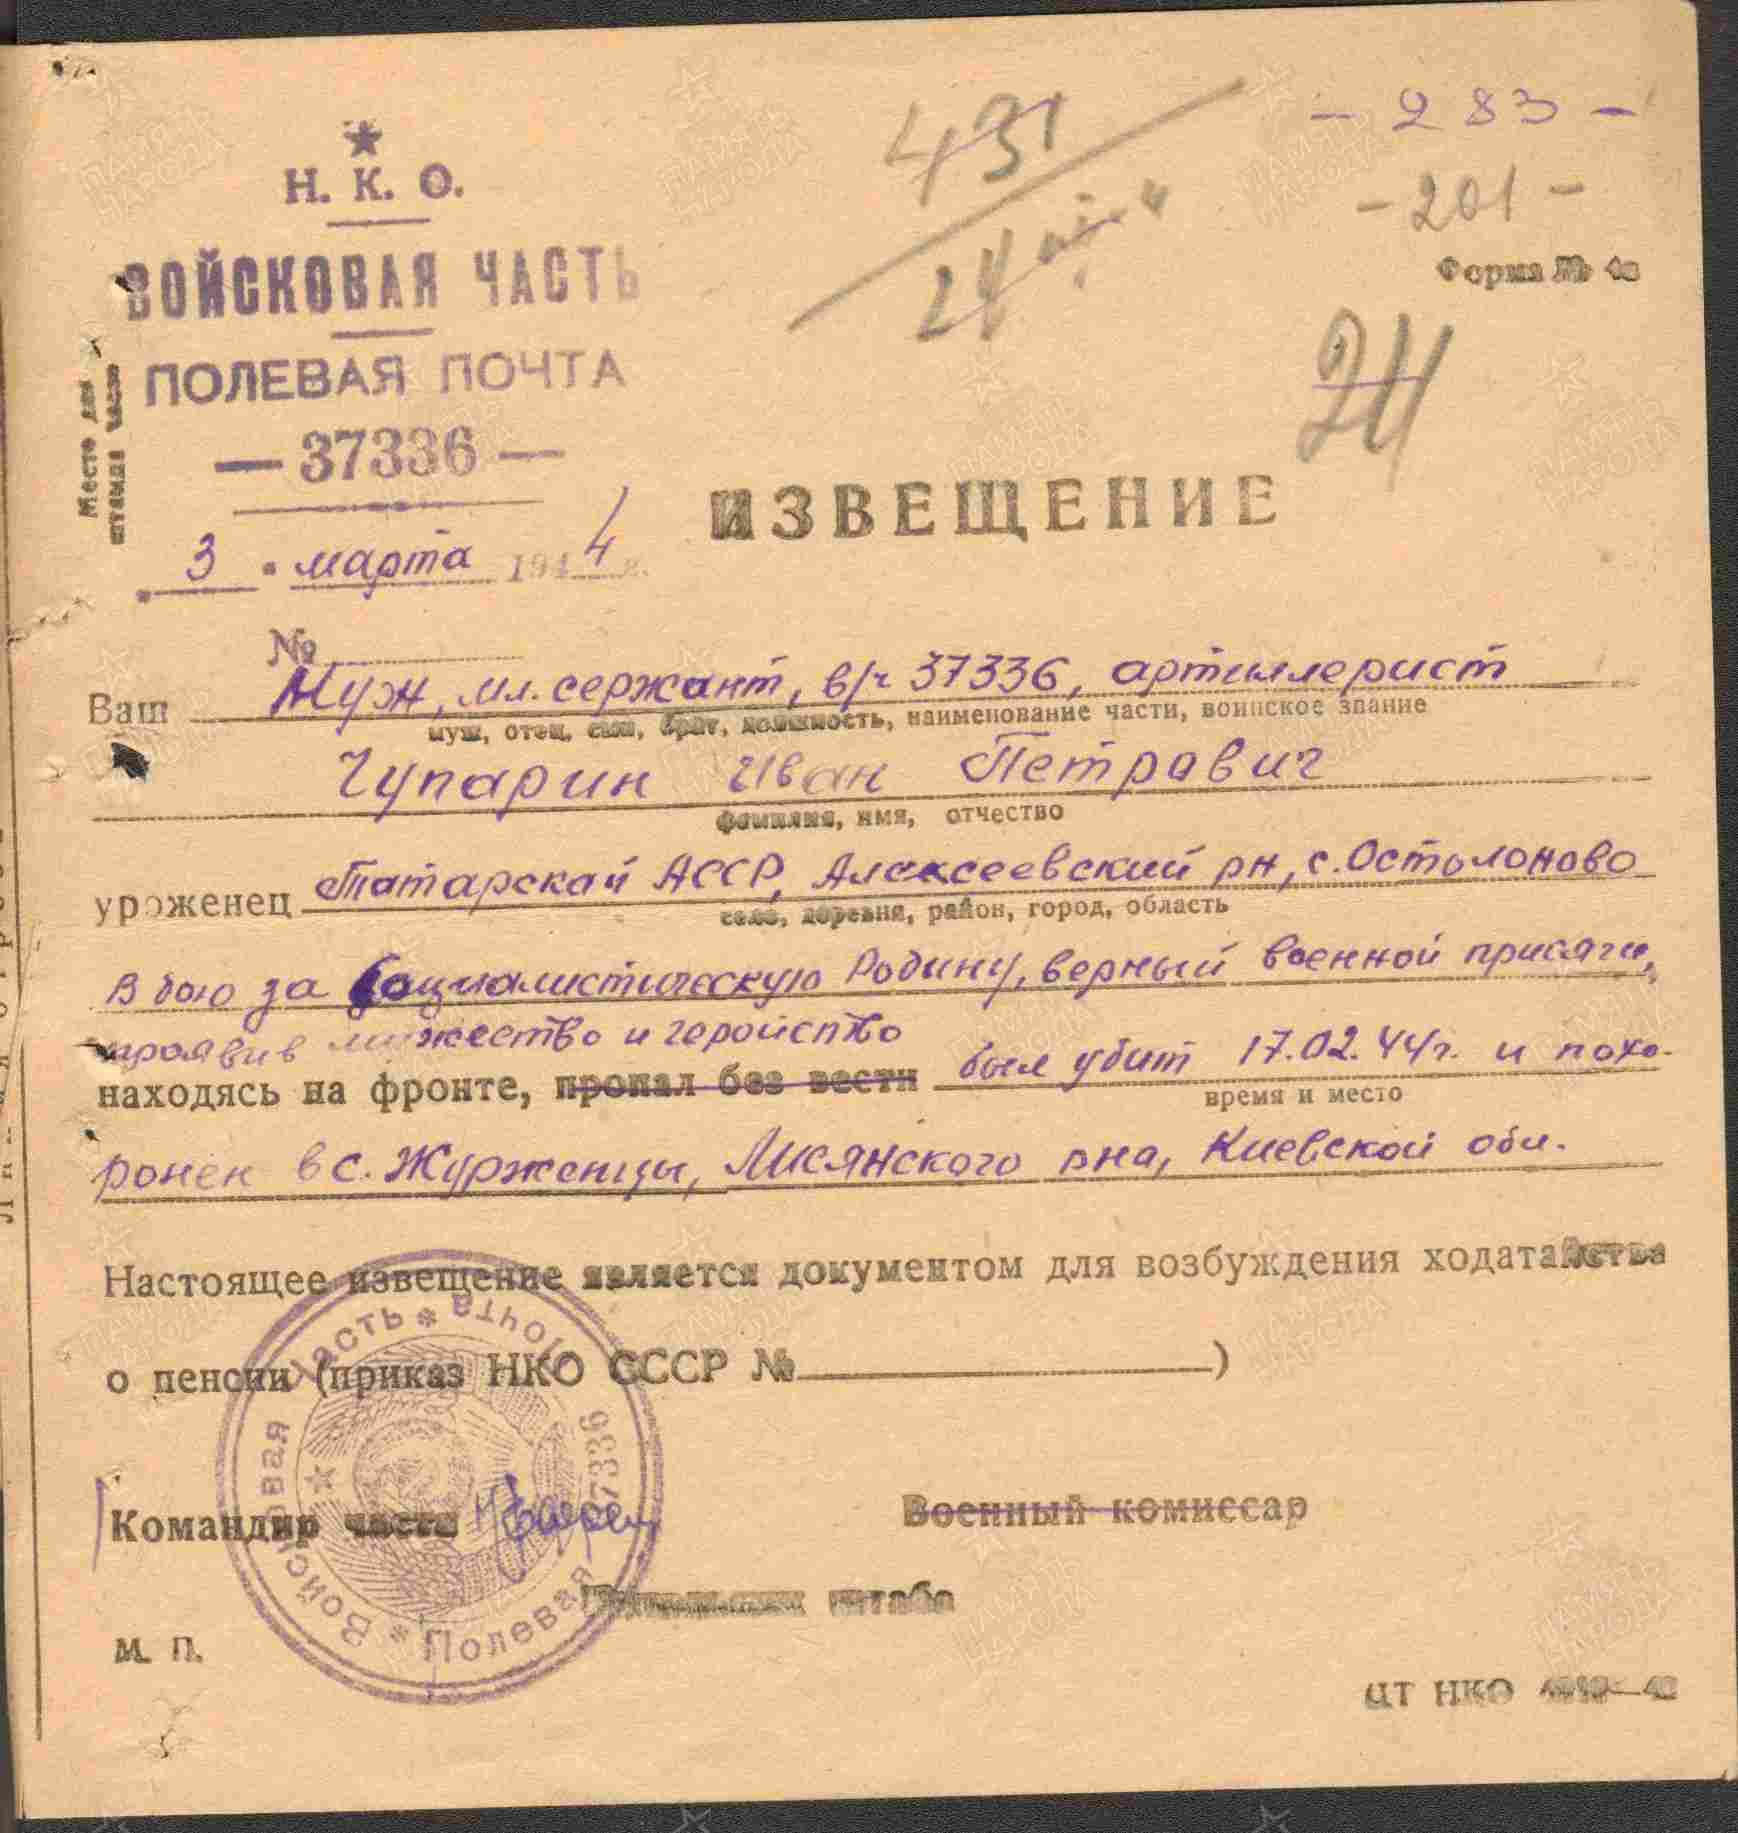 - 283 -
431
- 201 -
24
Н. К. О.
Форма №
ВОЙСКОВАЯ ЧАСТЬ
ПОЛЕВАЯ ПОЧТА
24
— 37336 —
Место для
штампа части
ИЗВЕЩЕНИЕ
3 " марта 1944 г.
№
Ваш Муж, мл. сержант, в/ч 37336, артиллерист
муж, отец, сын, брат, должность, наименование части, воинское звание
Чупарин Иван Петрович
фамилия, имя, отчество
уроженец Татарской АССР, Алексеевский рн, с. Остолопово
село, деревня, район, город, область
В бою за Социалистическую Родину, верный военной присяги,
проявив мужество и геройство
находясь на фронте, пропал без вести был убит 17.02.44г. и похо-
время и место
ронен в с. Журженцы, Лисянского рна, Киевской обл.
Настоящее извещение является документом для возбуждения ходатайства
о пенсии (приказ НКО СССР № )
Командир части
Военный комиссар
штаба
М. П.
Войсковая часть * Полевая почта 37336 *
ЦТ НКО
ПАМЯТЬ НАРОДА